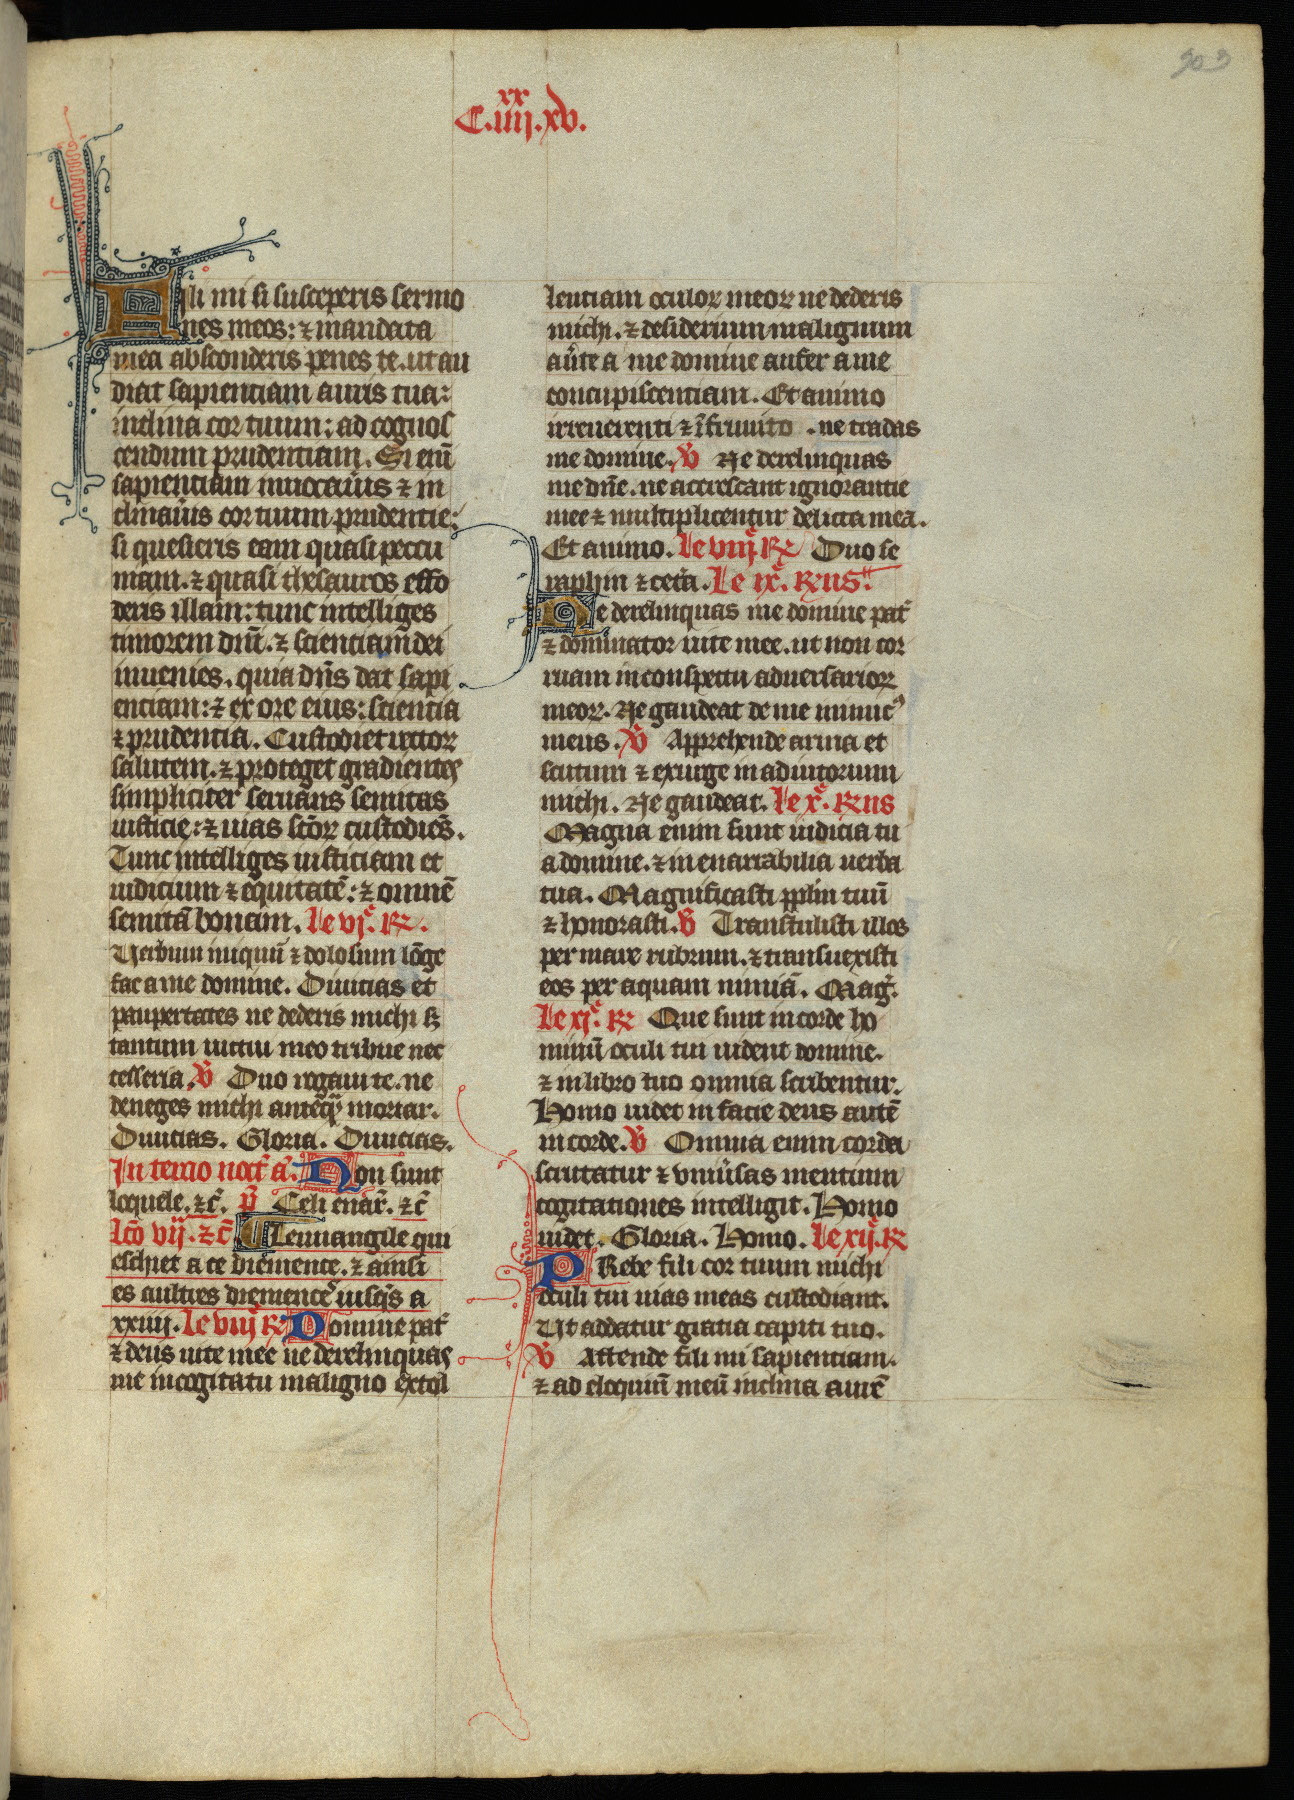 203
xx
C.iiij.xv.
Fili mi si susceperis sermo
nes meos: ⁊ mandata
mea absconderis penes te. ut au
diat sapientiam auris tua:
inclina cor tuum: ad cognos
cendum prudentiam. Si enī
sapientiam inuocaūis ⁊ in
clinaūis cor tuum prudentie:
si quesieris eam quasi peccu
niam. ⁊ quasi thesauros effo
deris illam: tunc intelliges
timorem dnī. ⁊ scientiam dei
inuenies. quia dn̄s dat sapi
entiam: ⁊ ex ore eius: scientia
⁊ prudentia. Custodiet rector
salutem. ⁊ proteget gradientes
simpliciter seruans semitas
iusticie: ⁊ uias sc̄oꝝ custodiēs.
Tunc intelliges iusticiam et
iudicium ⁊ equitatē: ⁊ omnē
semitā bonam. Le vj.ͨ ℞.
Uerbum iniquū ⁊ dolosum lōge
fac a me domine. Diuicias et
paupertates ne dederis michi sꝫ
tantum uictui meo tribue nec
cesseria. ℣ Duo rogaui te. ne
deneges michi anteq̄ moriar.
Diuicias. Gloria. Diuicias.
In tercio noct̄ a᷒. Non sunt
loquele. ⁊c̄. p̄s Celi enar̄. ⁊c̄
Lc̄o vij. ⁊c̄ Leuuangile qui
eschiet a ce diemence. ⁊ ainsi
es aultres diemences iusq̄s a
xxiiij. Le viij ℞ Domine pat̄
⁊ deus uite mee ne derelinquas
me in cogitatu maligno extol
lentiam oculoꝝ meoꝝ ne dederis
michi. ⁊ desiderium malignum
aūte a me domine aufer a me
concupiscentiam. Et animo
irreuerenti ⁊ īfrunito . ne tradas
me domine. ℣ Ne derelinquas
me dn̄e. ne accrescant ignorantie
mee ⁊ multiplicentur delicta mea.
Et animo. Le viiij.ͨ ℞ Duo se
raphin ⁊ cet̄a. Le ix.ͨ ℞us
Ne derelinquas me domine pat̄
⁊ dominator uite mee. ut non cor
ruam in conspectu aduersarioꝝ
meoꝝ. Ne gaudeat de me inimicꝰ
meus. ℣ Apprehende arma et
scutum ⁊ exurge in adiutorium
michi. Ne gaudeat. Le x.ͨ ℞us
Magna enim sunt iudicia tu
a domine. ⁊ inenarrabilia uerba
tua. Magnificasti pplm̄ tuū
⁊ honorasti. ℣ Transtulisti illos
per mare rubrum. ⁊ transuexisti
eos per aquam nimiā. Maḡ.
Le xj.ͨ ℞ Que sunt in corde ho
minū oculi tui uident domine.
⁊ in libro tuo omnia scribentur.
Homo uidet in facie deus autē
in corde. ℣ Omnia enim corda
scrutatur ⁊ vniūsas mentium
cogitationes intelligit. Homo
uidet. Gloria. Homo. Le xij.ͨ ℞
PRebe fili cor tuum michi
oculi tui uias meas custodiant.
Ut addatur gratia capiti tuo.
℣ Attende fili mi sapientiam.
⁊ ad eloquiū meū inclina aurē